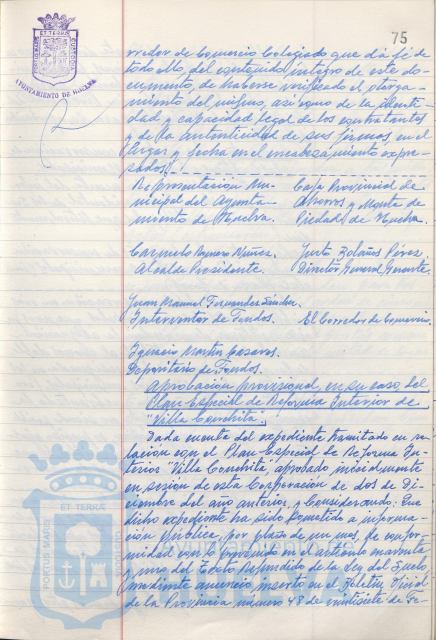 75
PORTUS MARIS ET TERRAE CUSTODIA
AYUNTAMIENTO DE HUELVA
rredor de Comercio Colegiado que dá fé de
todo ello, del contenido íntegro de este do-
cumento, de haberse verificado el otorga-
miento del mismo, así como de la identi-
dad y capacidad legal de los contratantes
y de la autenticidad de sus firmas, en el
lugar y fecha en el encabezamiento expre-
sados.
Representación Mu- Caja Provincial de
nicipal del Ayunta- Ahorros y Monte de
miento de Huelva. Piedad de Huelva.
Carmelo Romero Núñez. Justo Bolaños Pérez
Alcalde Presidente. Director General Gerente.
Juan Manuel Fernández Sánchez.
Interventor de Fondos. El Corredor de Comercio.
Ignacio Martín Casaros.
Depositario de Fondos.
Aprobación provisional, en su caso, del
Plan Especial de Reforma Interior de
"Villa Conchita".
Dada cuenta del expediente tramitado en re-
lación con el Plan Especial de Reforma In-
terior "Villa Conchita", aprobado inicialmente
en sesión de esta Corporación de dos de Di-
ciembre del año anterior, y Considerando: Que
dicho expediente ha sido sometido a informa-
ción pública, por plazo de un mes, de confor-
midad con lo prevenido en el artículo cuarenta
y uno del Texto Refundido de la Ley del Suelo
mediante anuncio inserto en el Boletín Oficial
de la Provincia número 48 de veintisiete de Fe-